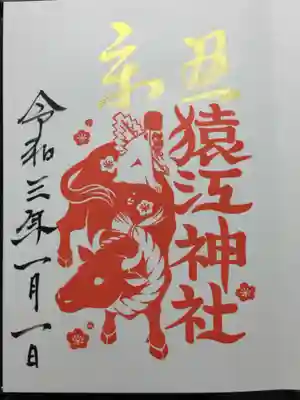 辛丑
猿江神社
令和三年一月一日